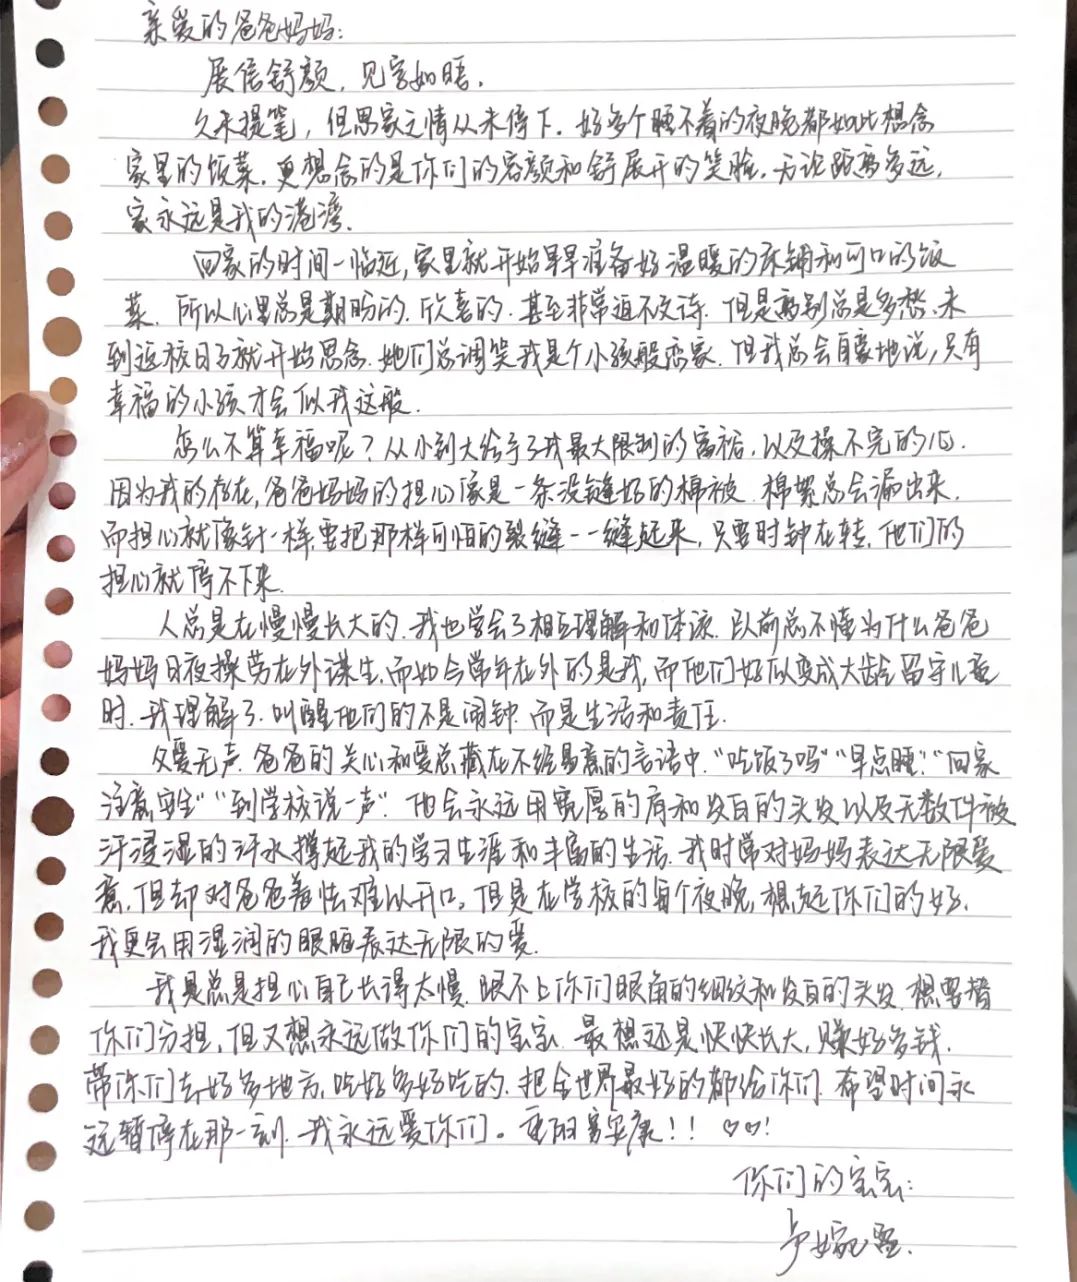 亲爱的爸爸妈妈：
展信舒颜，见字如晤。
久未提笔，但思家之情从未停下。好多个睡不着的夜晚都如此想念
家里的饭菜。更想念的是你们的容颜和舒展开的笑脸。无论距离多远，
家永远是我的港湾。
回家的时间一临近，家里就开始早早准备好温暖的床铺和可口的饭
菜。所以心里总是期盼的、欣喜的、甚至非常迫不及待。但是离别总是多愁、未
到返校日子就开始思念。她们总调笑我是个小孩般恋家。但我总会自豪地说，只有
幸福的小孩才会似我这般。
怎么不算幸福呢？从小到大给予了我最大限制的富裕，以及操不完的心。
因为我的存在，爸爸妈妈的担心像是一条没缝好的棉被，棉絮总会漏出来，
而担心就像针一样，要把那样可怕的裂缝一一缝起来，只要时钟在转，他们的
担心就停不下来。
人总是在慢慢长大的，我也学会了相互理解和体谅。以前总不懂为什么爸爸
妈妈日夜操劳在外谋生，而如今常年在外的是我，而他们好似变成大龄留守儿童
时，我理解了，叫醒他们的不是闹钟，而是生活和责任。
父爱无声，爸爸的关心和爱总藏在不经易意的言语中，“吃饭了吗”“早点睡”“回家
注意安全”“到学校说一声”。他会永远用宽厚的肩和发白的头发以及无数件被
汗浸湿的汗水撑起我的学习生涯和丰富的生活。我时常对妈妈表达无限爱
意，但却对爸爸羞怯难以开口。但是在学校的每个夜晚，想起你们的好，
我更会用湿润的眼眶表达无限的爱。
我是总是担心自己长得太慢，跟不上你们眼角的细纹和发白的头发，想要替
你们分担，但又想永远做你们的宝宝。最想还是快快长大，赚好多钱，
带你们去好多地方，吃好多好吃的，把全世界最好的都给你们。希望时间永
远暂停在那一刻，我永远爱你们。重阳节安康！！♡♡！
你们的宝宝：
卢